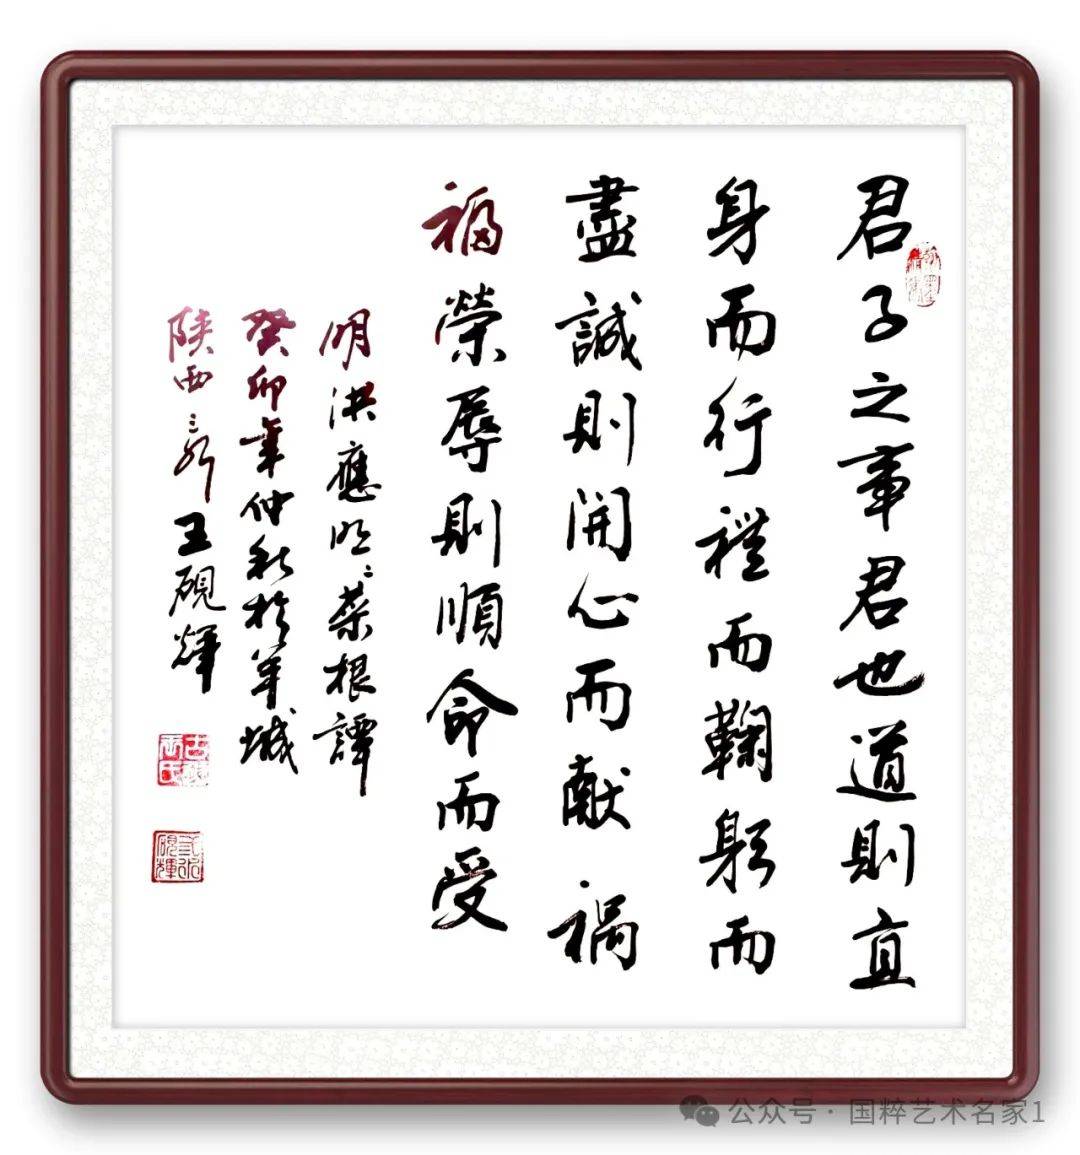 君子之事君也道則直
身而行禮而鞠躬而
盡誠則開心而献禍
福榮辱則順命而受
明洪應明菜根譚
癸卯年仲秋於羊城
陕西 王硯輝
公众号 · 国粹艺术名家1